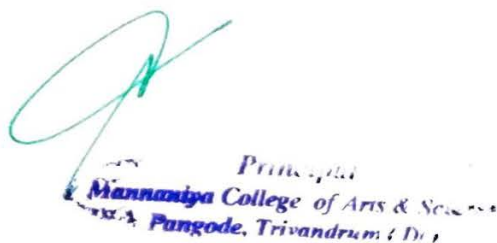 Principal
Mannaniya College of Arts & Science
Pangode, Trivandrum (Dt)